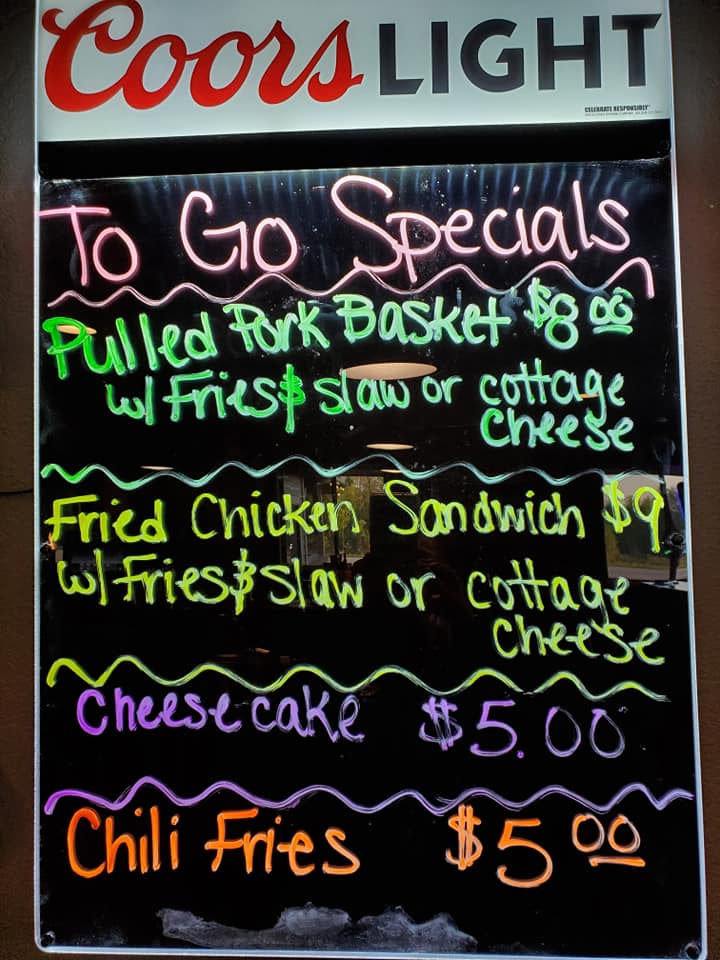 Coors LIGHT
CELEBRATE RESPONSIBLY®
To Go Specials
Pulled Pork Basket $8.00
w/ Fries & slaw or cottage
cheese
Fried Chicken Sandwich $9
w/ Fries & slaw or cottage
cheese
Cheesecake $5.00
Chili Fries $5.00